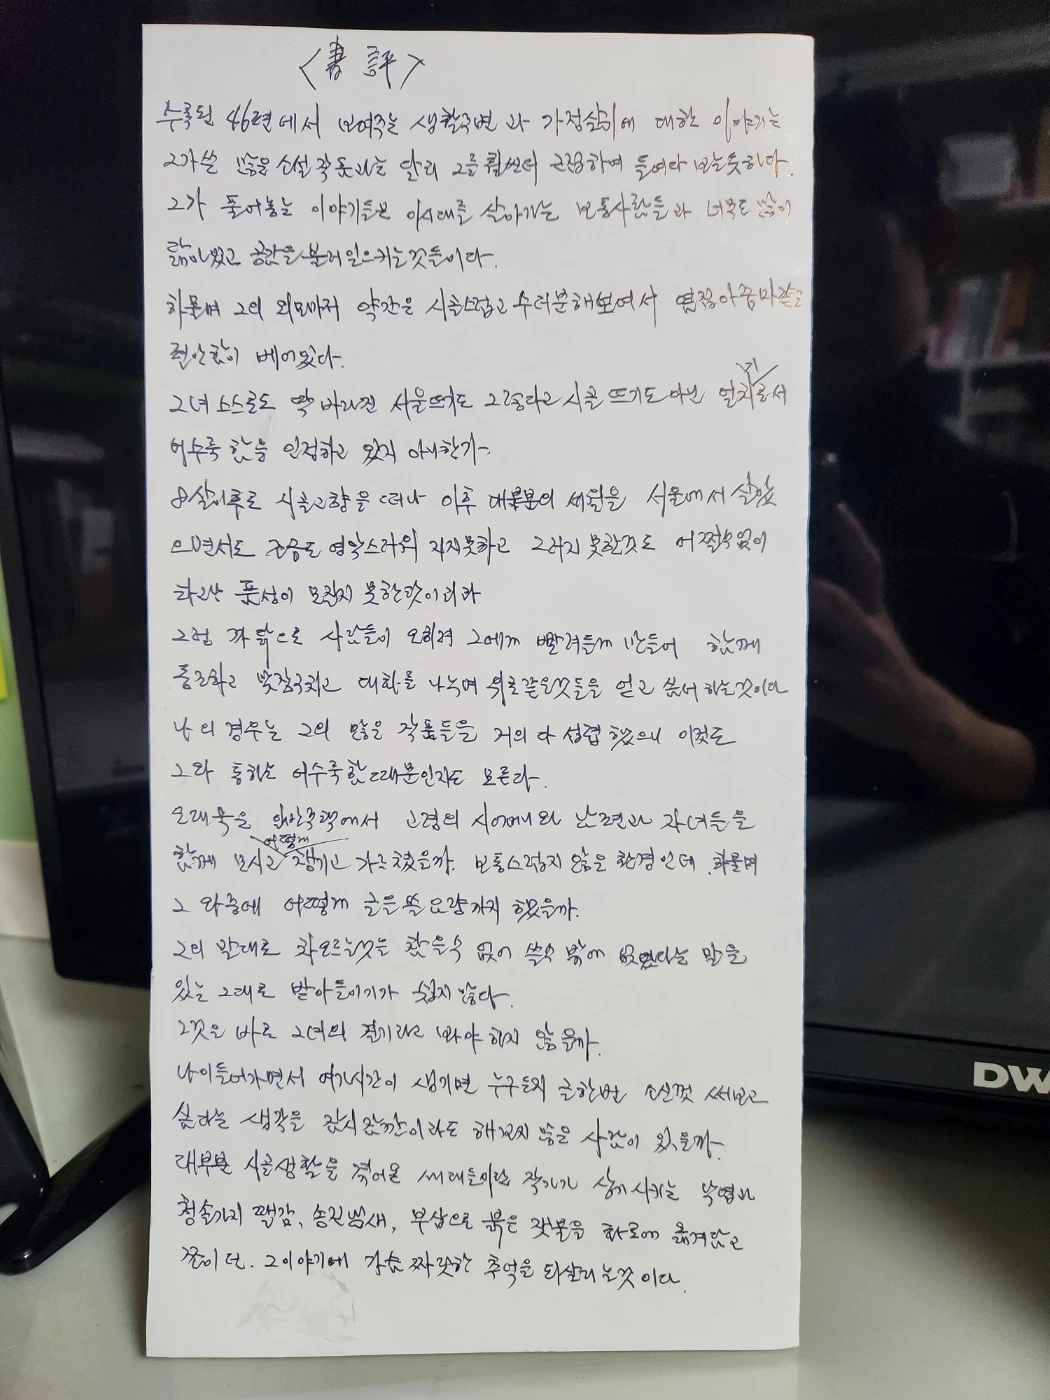 <書評>
수록된 46편에서 보여주는 생활주변과 가정살림에 대한 이야기는
그가 쓴 많은 소설 작품과는 달리 그를 훨씬더 근접하여 들여다 보는듯하다.
그가 풀어놓는 이야기들은 이시대를 살아가는 보통사람들과 너무도 많이
닮아있고 공감을 불러일으키는것들이다.
하물며 그의 외모마저 약간은 시골스럽고 수더분해보여서 옆집아줌마같은
편안함이 베어있다.
그녀 스스로도 딱 바라진 서울뜨기도 그렇다고 시골뜨기도 아닌 얼치기로서
어수룩함을 인정하고 있지 아니한가
8살이후로 시골고향을 떠나 이후 대부분의 세월을 서울에서 살았
으면서도 조금도 영악스러워 지지못하고 그러지 못한것도 어쩔수없이
타고난 품성이 모질지 못한탓이리라
그럼 까닭으로 사람들이 오히려 그에게 빨려들게 만들어 함께
동조하고 맞장구치고 대화를 나누며 위로같은것들을 얻고 싶어 하는것이다
나의 경우는 그의 많은 작품들을 거의 다 섭렵했으니 이것도
그와 통하는 어수룩함 때문인지도 모른다.
오래묵은 한옥에서 고령의 시어머니와 남편과 자녀들을
함께 모시고 어떻게 챙기고 가르쳤을까. 보통스럽지 않은 환경인데 하물며
그 와중에 어떻게 글을 쓸 요량까지 했을까.
그의 말대로 차오르는것을 참을수 없어 쓸수 밖에 없었다는 말을
있는 그대로 받아들이기가 쉽지않다.
그것은 바로 그녀의 끼라고 봐야 하지 않을까.
나이들어가면서 여가시간이 생기면 누구든지 글한번 소신껏 써보고
싶다는 생각을 잠시잠깐이라도 해보지 않은 사람이 있을까
대부분 시골생활을 겪어온 세대들이란 작가가 상기시키는 낙엽과
청솔가지 땔감, 송진냄새, 부삽으로 붉은 잿불을 화로에 옮겨담고
쬐이던. 그이야기에 가슴 짜릿한 추억을 되살리는것이다.
DW